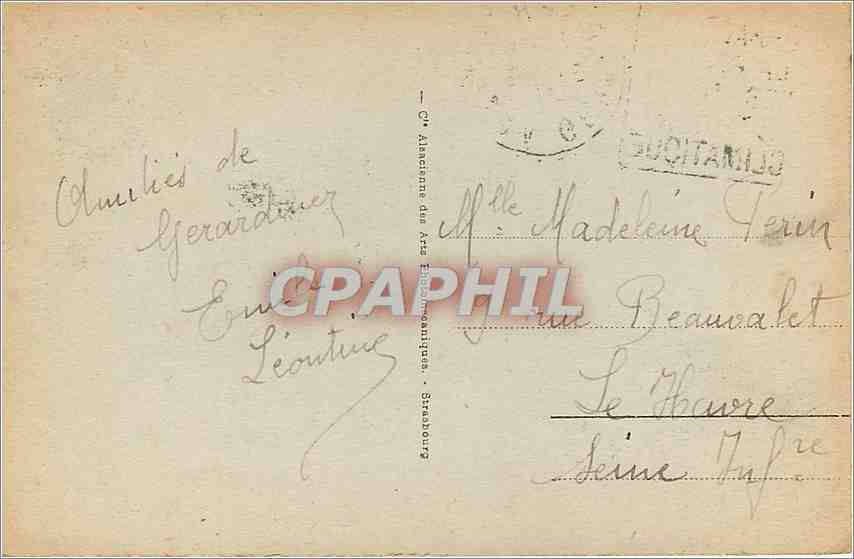 Amitiés de
Gerardmer
Emile
Léontine
— Cie Alsacienne des Arts Photomécaniques. - Strasbourg
CPAPHIL
CLIMATIQUE
Mlle Madeleine Perin
9 rue Beauvalet
Le Havre
Seine Infre